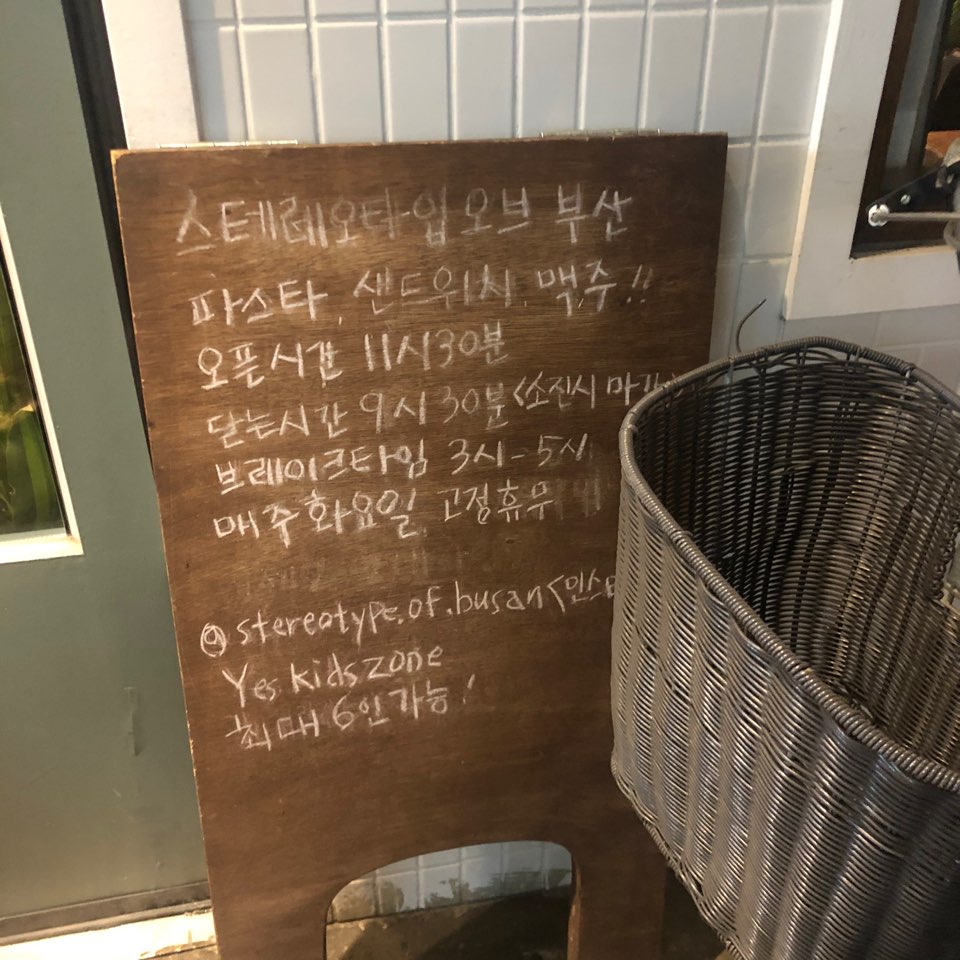 스테레오타입 오브 부산
파스타, 샌드위치, 맥주!!
오픈시간 11시30분
닫는시간 9시 30분 <소진시 마감>
브레이크타임 3시-5시
매주 화요일 고정휴무
@stereotype.of.busan <인스
Yes kids zone
최대 6인 가능!